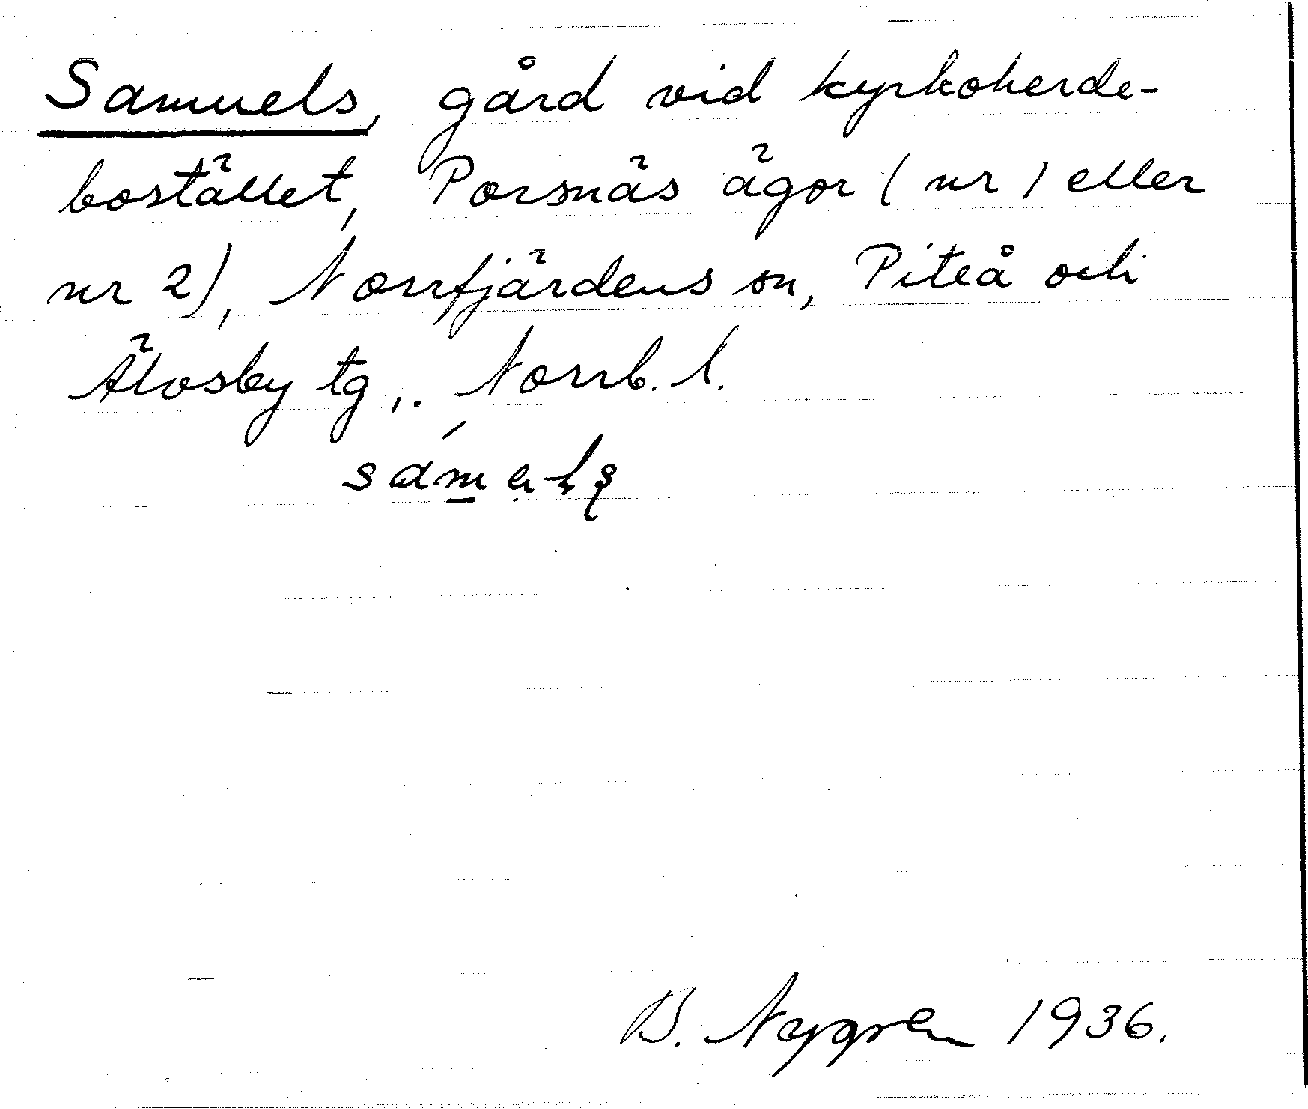 Samuels, gård vid kyrkoherde-
bostället, Porsnäs ägor (nr 1 eller
nr 2), Norrfjärdens sn, Piteå och
Älvsby tg,. Norrb. l.
B. Nygren 1936.